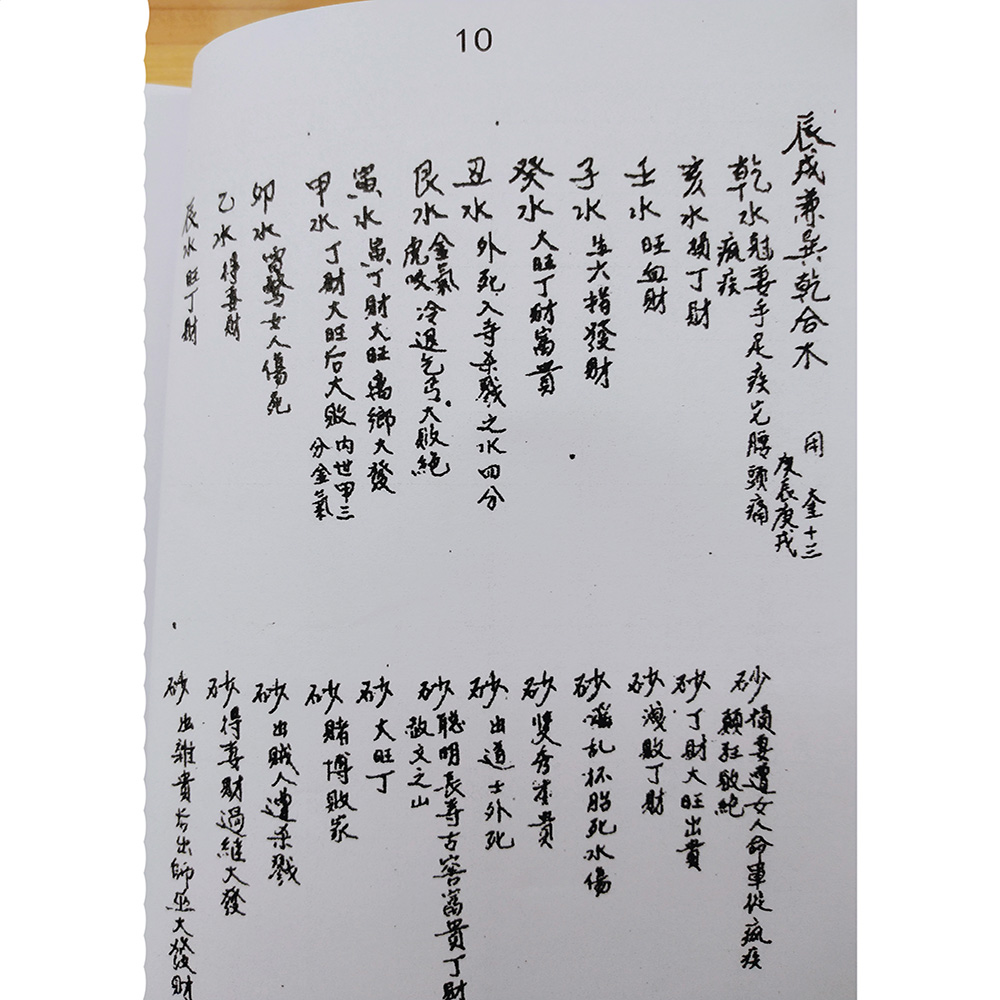 10
辰戌兼巽乾合水
用奎十三
庚辰庚戌
乾水尅妻手足疾宅腰頭痛
瘋疾
亥水損丁財
壬水旺血財
子水生六指發財
癸水大旺丁財富貴
丑水外死入寺杀戮之水四分
艮水金氣冷退乞丐大敗絶
虎咬
寅水寅丁財大旺离鄉大發
甲水丁財大旺后大敗内世甲三
分金氣
卯水雷驚女人傷死
乙水得妻財
辰水旺丁財
砂損妻遭女人命車從瘋疾
顛狂敗絶
砂丁財大旺出貴
砂演敗丁財
砂乱杯胎死水傷
砂雙秀貴
砂出道士外死
砂聰明長寿古窖富貴丁財
啟文之山
砂大旺丁
砂賭博敗家
砂出賊人遭杀戮
砂得妻財過継大發
砂出雜貴出師巫大發財